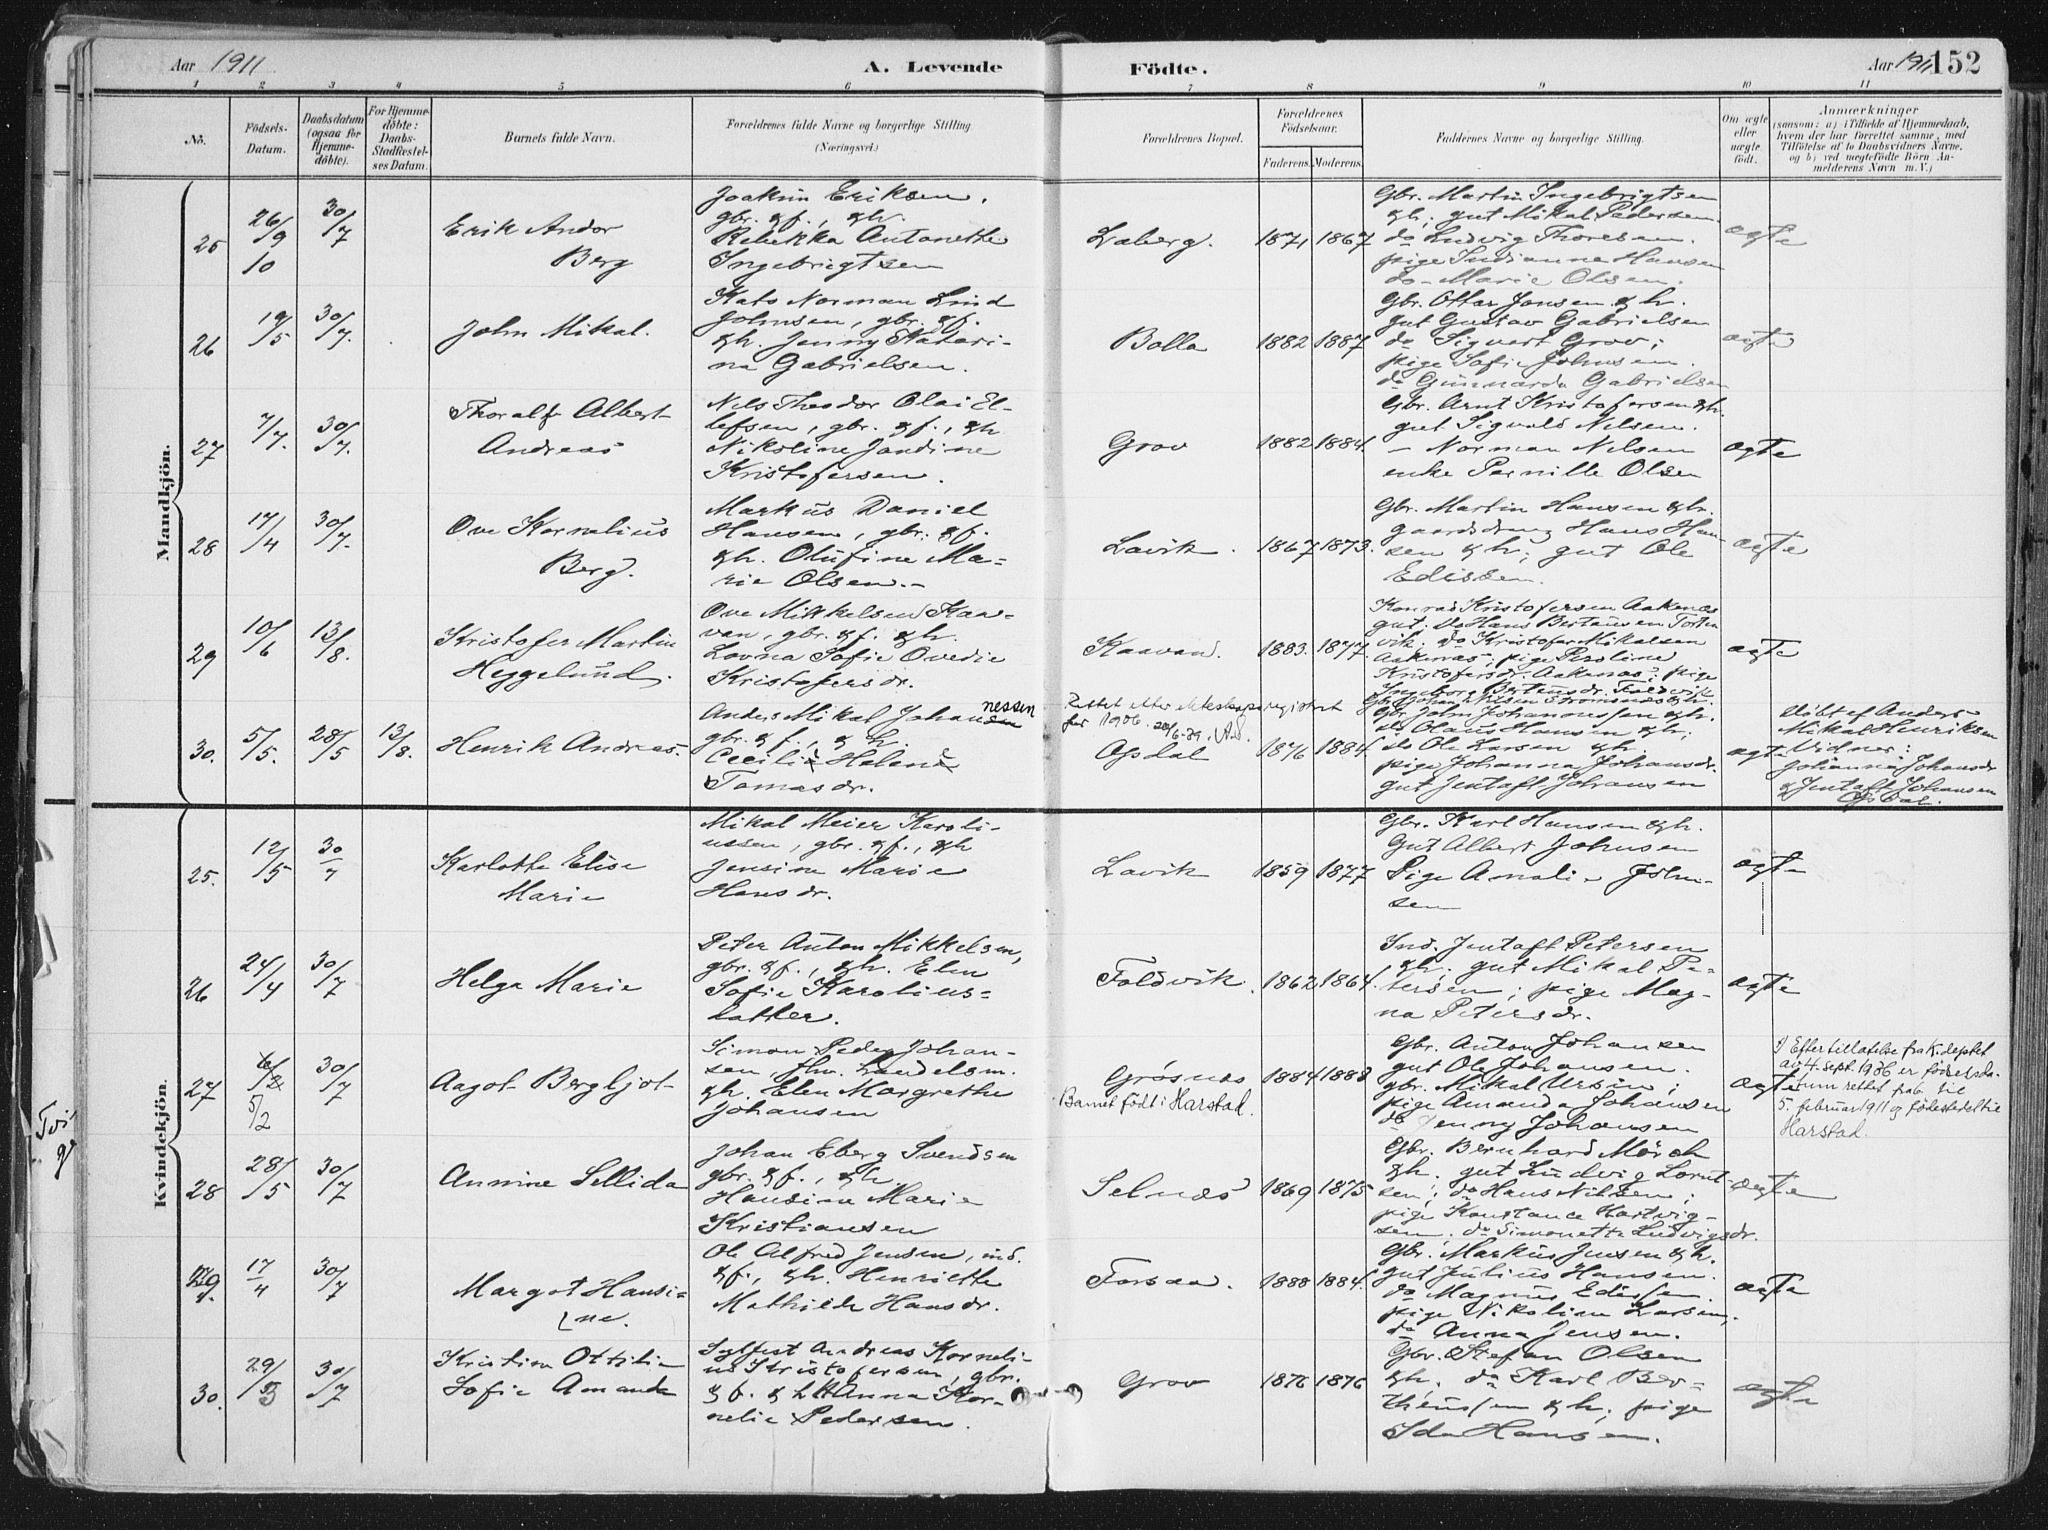 Aar 1911
A. Levende
Födte.
Aar 1911
152
1 2 3 4 5 6 7 8 9 10 11
No.
Födsels-
Datum.
Daabsdatum
(ogsaa for
Hjemme-
döbte).
For Hjemme-
döbte:
Daabs-
Stadfæstel-
ses Datum.
Barnets fulde Navn.
Forældrenes fulde Navne og borgerlige Stilling.
(Næringsvei.)
Forældrenes Bopæl.
Forældrenes
Födselsaar.
Faderens.
Moderens.
Faddernes Navne og borgerlige Stilling.
Om ægte
eller
uægte
födt.
Anmærkninger
(saasom: a) i Tilfælde af Hjemmedaab,
hvem der har forrettet samme, med
Tilföielse af to Daabsvidners Navne,
og b) ved uegtefödte Börn An-
melderens Navn m.V.)
Mandkjön.
25
26/9
10
30/7
Erik Andor
Berg
Joakim Eriksen,
gbr. & f., & h.
Rebekka Antonette
Ingebrigtsen
Laberg.
1871 1867
Gbr. Martin Ingebrigtsen
& h; gut Mikal Pedersen.
do Ludvig Thoresen.
pige Indianna Hansen
do Marie Olsen.
ægte
26
19/5
30/7.
John Mikal.
Kato Norman Lind
Johnsen, gbr. & f.
& h. Jenny Katari-
na Gabrielsen.
Bolla
1882 1887
Gbr. Ottar Jonsen & h.
gut Gustav Gabrielsen
do Sigvart Grov;
pige Sofie Johnsen.
do Gunnarda Gabrielsen
ægte
27
7/7.
30/7.
Thoralf Albert
Andreas
Nels Theodor Olai El-
lefsen, gbr. & f., & h
Nikoline Jandine
Kristofersen.
Grov
1882 1884.
Gbr. Arnt Kristofersen & h.
gut Sigvald Nilsen.
– Norman Nelsen
enke Pernille Olsen
ægte
28
17/4
30/7.
Ove Kornelius
Berg.
Markus Daniel
Hansen, gbr. & f.
& h. Olufine Ma-
rie Olsen.-
Lavik.
1867 1873.
Gbr. Martin Hansen & h.
gaardsdreng Hans Han-
sen & h; gut Ole
Edissen.
ægte
29
10/6
13/8.
Kristofer Martin
Heggelund.
Ove Mikkelsen Kaas-
van, gbr. & f. & h.
Lovna Sofie Ovedie
Kristofersdr.
Kaavan.
1883. 1877.
Konrad Kristofersen Aakenæs
gut. do Hans Berteusen Torten-
vik. do Kristofer Mikalsen
Aakenæs; pige Peroline
Kristofersdr. Aakenæs; pige
Ingeborg Berteusdr. Foldvik
ægte
30.
5/5.
28/5
13/8.
Henrik Andreas.
Anders Mikal Johansen
nessen
gbr. & f., & h.
Cecilie Helene
Tomasdr.
Rettet efter ekteskapsregistret
for 1906. 20/6-29.
Opdal
1876 1884.
Gbr. Johan Nilsen Strømsnes & h.
Gbr. John Johannessen & h.
do Olaus Hansen & h;
do Ole Larsen & h.
pige Johanna Johansdr.
gut Jentoft Johansen
ægte
Döbt af Anders
Mikal Henriksen
Vidner:
Johanna Johansdr
& Jentoft Johansen
Opdal.
Kvindekjön.
25.
12/5
30/7
Karlotte Elise
Marie
Mikal Meier Karoli-
ussen, gbr. & f., & h
Jensine Marie
Hansdr.
Lavik
1859 1877
Gbr. Karl Hansen & h.
Gut Albert Johnsen
Pige Amalie John-
sen
ægte
26
24/4
30/7
Helga Marie
Peter Anton Mikkelsen,
gbr. & f., & h. Elen
Sofie Karolius-
datter.
Foldvik.
1862 1864.
Ind. Jentoft Petersen
& h; gut Mikal Pe-
tersen; pige Mag-
na Petersdr.
ægte
27
6/2
5/2
30/7
Aagot Bergljot
Simon Peder Johan-
sen, fhv. handelsm.
& h. Elen Margrethe
Johansen
Grøsnes
Barnet født i Harstad.
1884 1888
Gbr. Anton Johansen
gut Ole Johansen.
gbr. Mikal Ursin;
pige Amanda Johansen
do Jenny Johansen
ægte
Efter tillatelse fra K.deptet
av 4. sept. 1936 er födselsda-
tum rettet til
5. februar 1911 og födestedet til
Harstad.
28
28/5
30/7
Annine Sellida
Johan Eberg Svendsen
gbr. & f., & h.
Hansine Marie
Kristiansen
Selnæs
1869 1875
Gbr. Bernhard Mörch
& h. gut Ludvig Lornt-
sen; do Hans Nilsen;
pige Konstance Hartvig-
sen. do Simonette Ludvigsdr.
ægte
29
17/4
30/7
Margot Hansi-
ne.
Ole Alfred Jensen, ind.
& f., & h. Henriette
Mathilde Hansdr.
Forsaa.
1888 1884.
Gbr. Markus Jensen & h.
gut Julius Hansen.
do Magnus Edissen.
pige Nikoline Larsen,
do Anna Jensen.
ægte
30.
29/3
30/7
Kristine Ottilie
Sofie Amanda
Sylfest Andreas Korneli-
us Kristofersen, gbr.
& f. & h. Anna Kor-
nelie Pedersen.
Grov
1876 1876
Gbr. Stefan Olsen
& h. do Karl Ber-
theussen & h; pige
Ida Hansen.
ægte